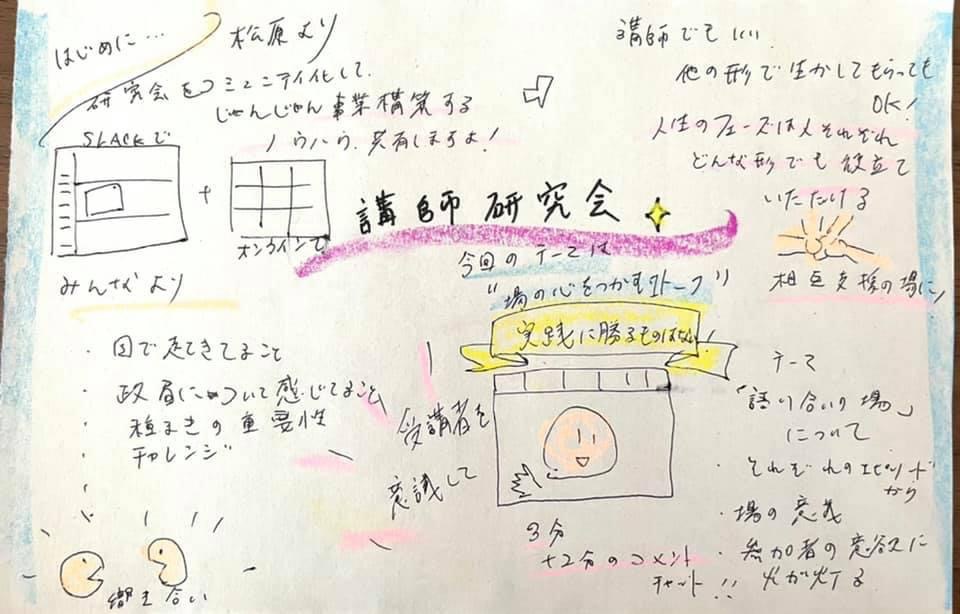 はじめに…
松原より
研究会をコミュニティ化して
じゃんじゃん事業構築する
ノウハウ、共有しますよ!
SLACKで
+
オンラインで
みんなより
・国で起きてること
・政局について感じてること
・種まきの重要性
チャレンジ
響き合い
講師研究会
今回のテーマは
"場の心をつかむトーク"
実践に勝るものはない!
受講者を
意識して
3分
+2分のコメント
チャット!!
講師でもいい
他の形で生かしてもらっても
OK!
人生のフェーズは人それぞれ
どんな形でも役立て
いただける
相互支援の場に!
テーマ
「語り合いの場」
について
・それぞれのエピソード
から
・場の意義
・参加者の意欲に
火が灯る